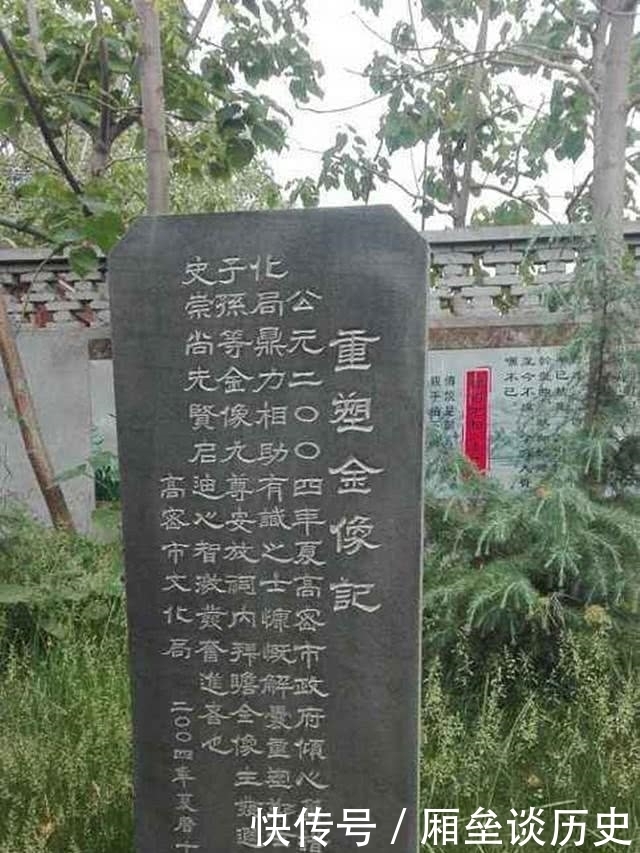 重塑金像記
公元二〇〇四年夏高密市政府傾心
化局鼎力相助有識之士慷慨解囊重塑
子孫等金像九尊安放祠内拜瞻金像
史崇尚先賢启迪心智激發奮進喜也
高密市文化局
二〇〇四年夏曆十
快传号／厢垒谈历史